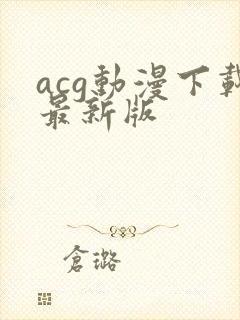 acg動漫下載
最新版
倉璐